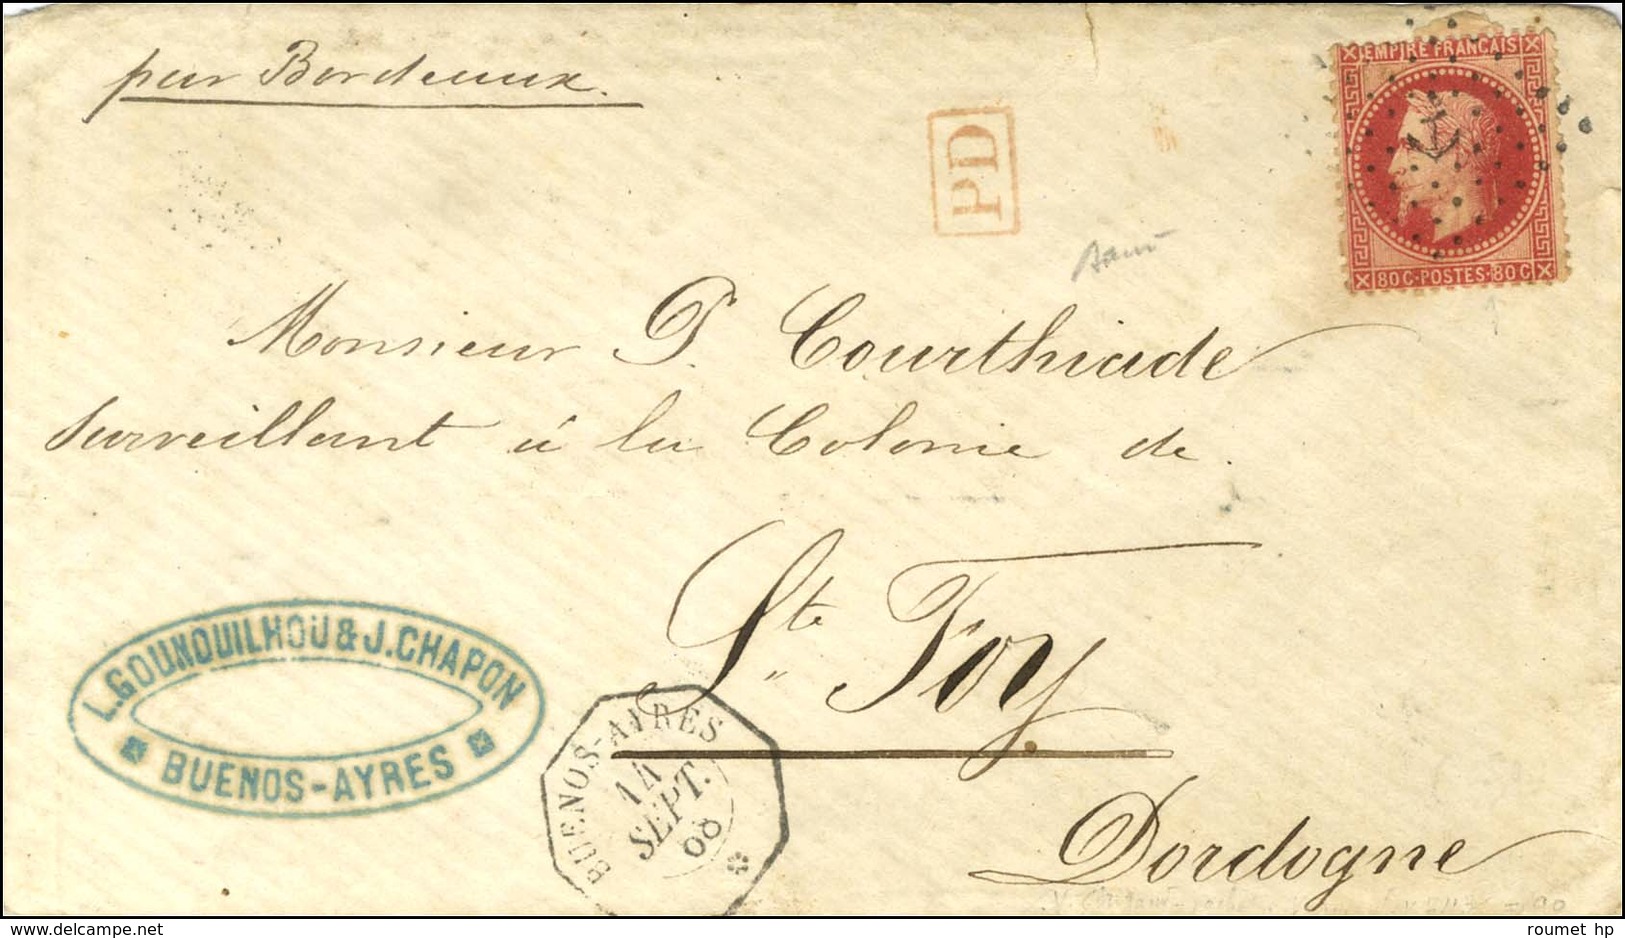 par Bordeaux.
EMPIRE FRANÇAIS
80 C·POSTES·80 C
PD
Monsieur P. Courthiade
Surveillant à la Colonie de
Ste Foy
Dordogne
L. GOUNOUILHOU & J. CHAPON
BUENOS-AYRES
BUENOS-AYRES
14
SEPT.
68
www.delcampe.net
roumet hp